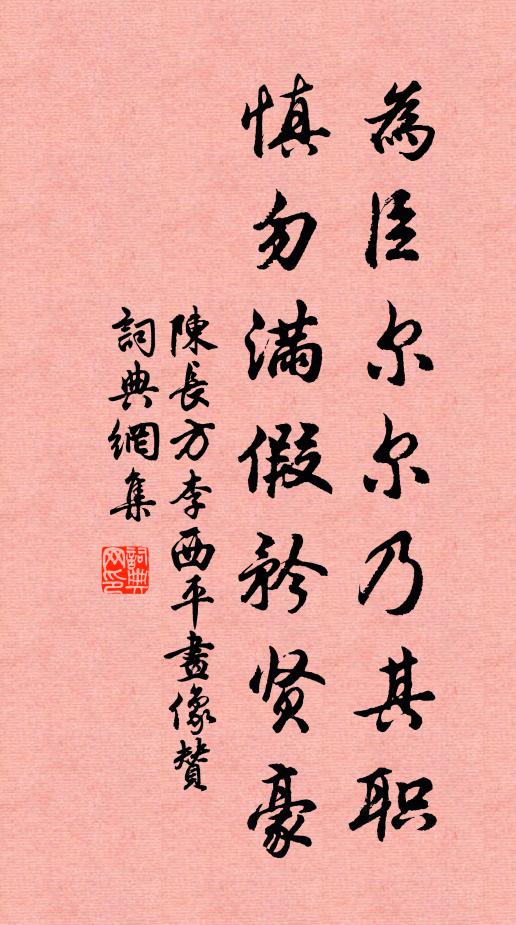 為臣尔尔乃其职
慎勿満假矜贤豪
陳長方李西平畫像赞
詞典網集
詞典网印